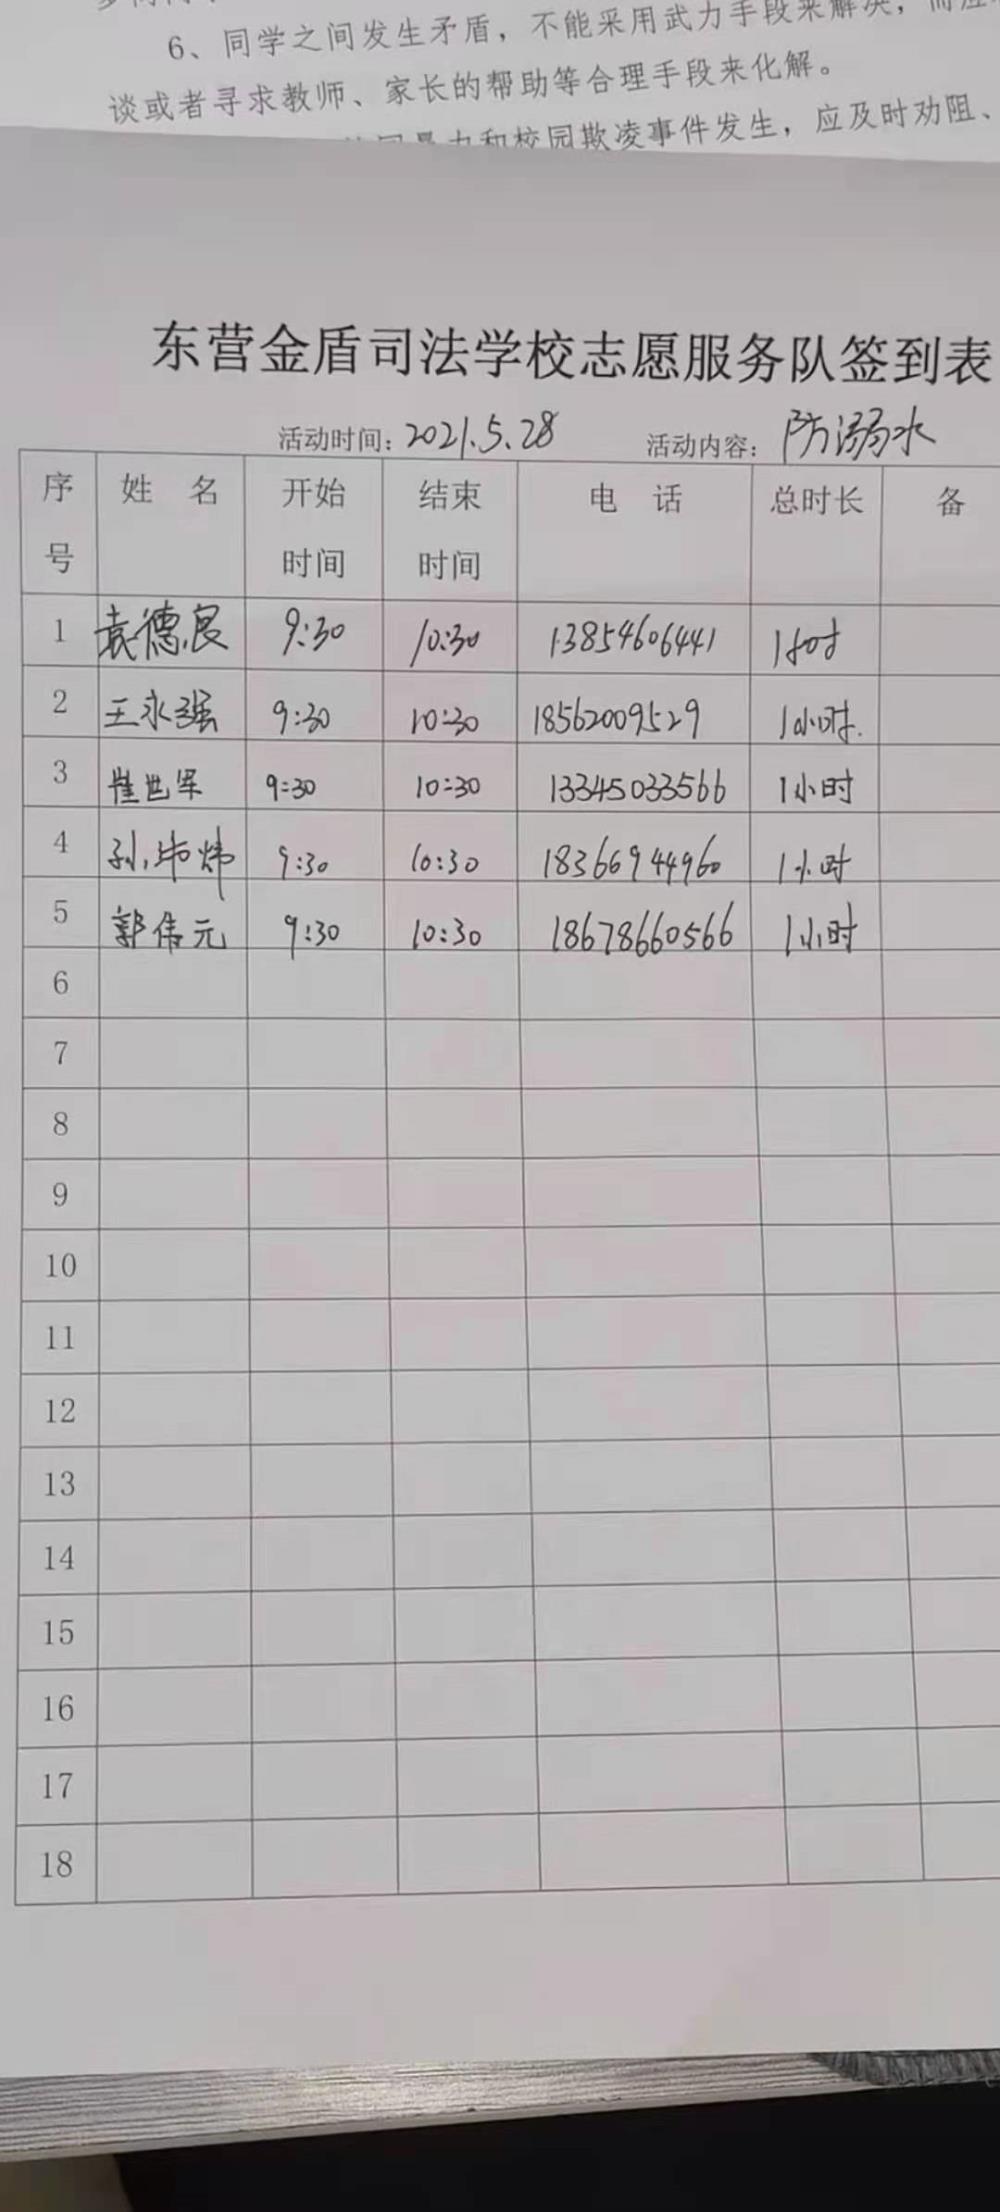 6、同学之间发生矛盾，不能采用武力手段来解决，而应
谈或者寻求教师、家长的帮助等合理手段来化解。
校园暴力和校园欺凌事件发生，应及时劝阻、
东营金盾司法学校志愿服务队签到表
活动时间：2021.5.28 活动内容：防溺水
序号 姓名 开始时间 结束时间 电话 总时长 备
1 袁德良 9:30 10:30 13854606441 1小时
2 王永强 9:30 10:30 18562009529 1小时.
3 崔世军 9:30 10:30 13345033566 1小时
4 孙炜 9:30 10:30 18366944960 1小时
5 郭伟元 9:30 10:30 18678660566 1小时
6
7
8
9
10
11
12
13
14
15
16
17
18